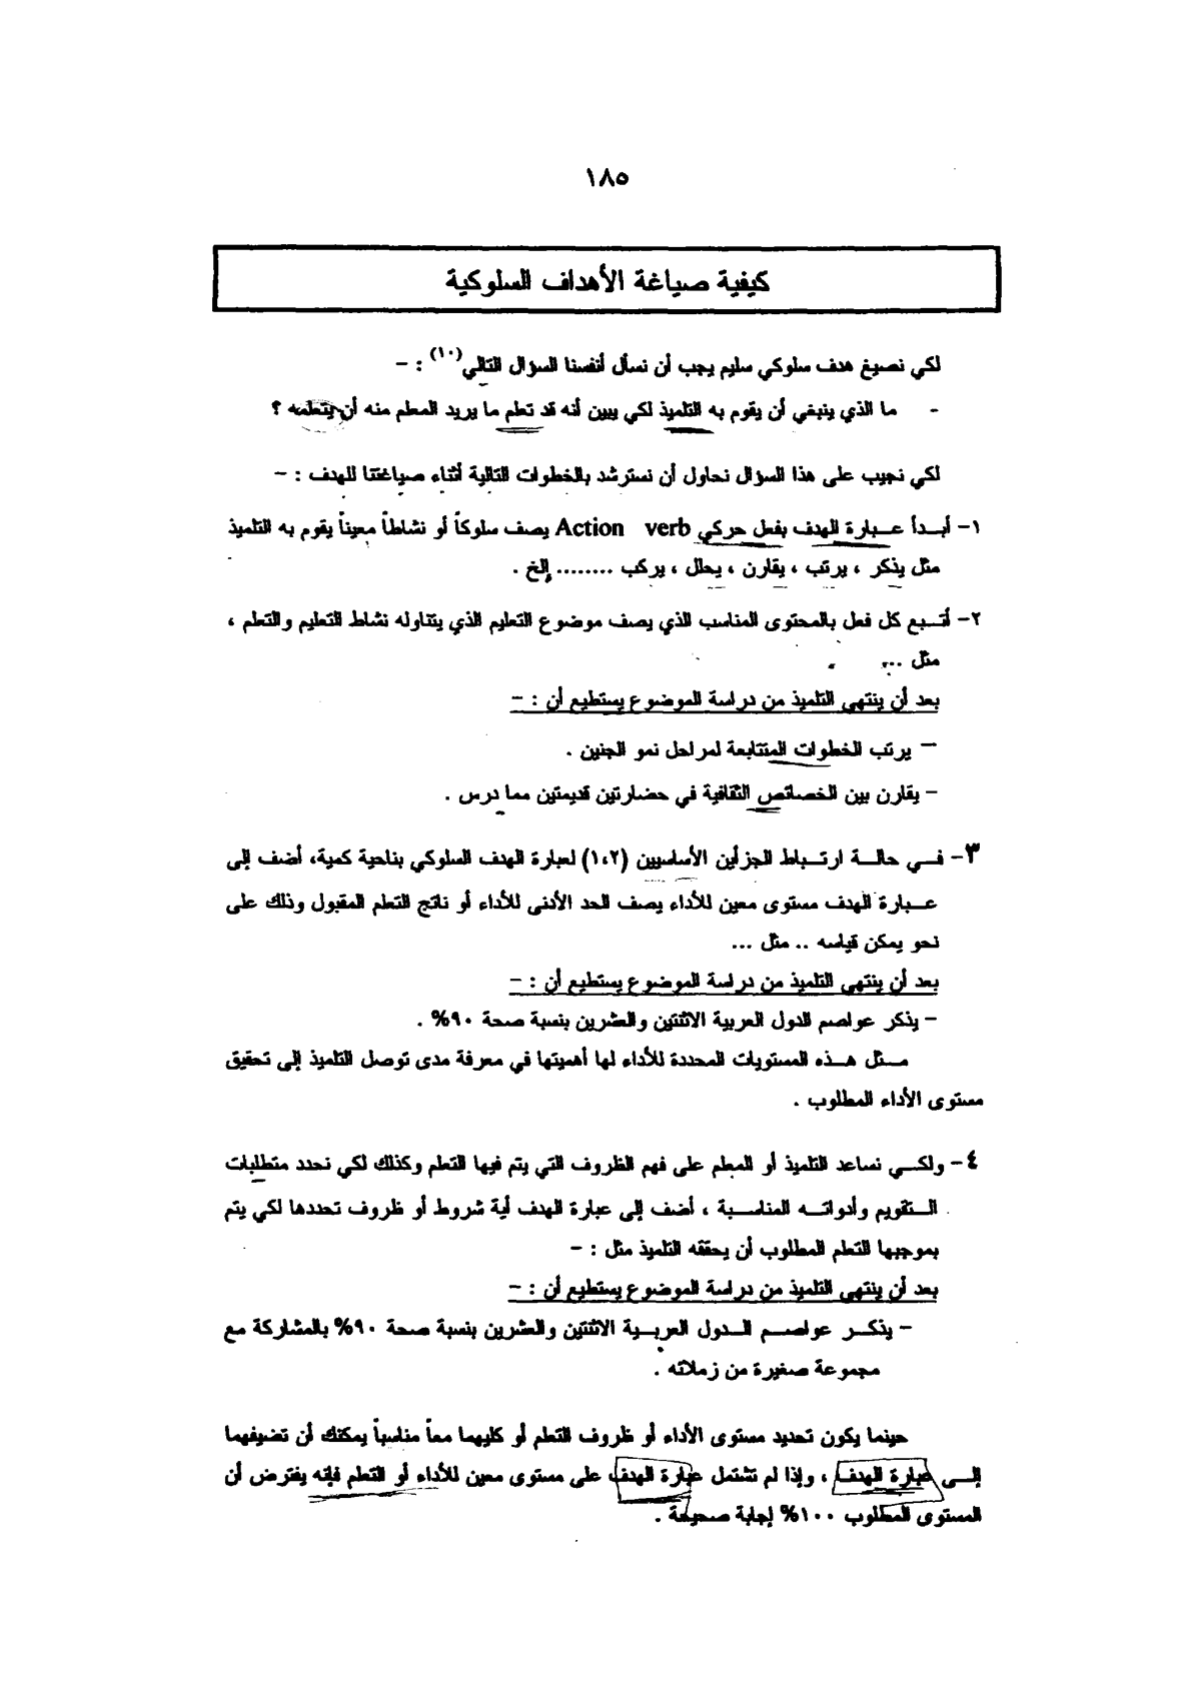 ١٨٥
كيفية صياغة الأهداف السلوكية
لكي نصيغ هدف سلوكي سليم يجب أن نسأل أنفسنا السؤال التالي(١٠) : –
- ما الذي ينبغي أن يقوم به التلميذ لكي يبين أنه قد تعلم ما يريد المعلم منه أن يتعلمه ؟
لكي نجيب على هذا السؤال نحاول أن نسترشد بالخطوات التالية أثناء صياغتنا للهدف : –
١– أبدأ عبارة الهدف بفعل حركي Action verb يصف سلوكاً أو نشاطاً معيناً يقوم به التلميذ
مثل يذكر ، يرتب ، يقارن ، يحلل ، يركب ........ إلخ .
٢– أتبع كل فعل بالمحتوى المناسب الذي يصف موضوع التعليم الذي يتناوله نشاط التعليم والتعلم ،
مثل ...
بعد أن ينتهي التلميذ من دراسة الموضوع يستطيع أن : –
– يرتب الخطوات المتتابعة لمراحل نمو الجنين .
– يقارن بين الخصائص الثقافية في حضارتين قديمتين مما درس .
٣– في حالة ارتباط الجزأين الأساسيين (١،٢) لعبارة الهدف السلوكي بناحية كمية، أضف إلى
عبارة الهدف مستوى معين للأداء يصف الحد الأدنى للأداء أو ناتج التعلم المقبول وذلك على
نحو يمكن قياسه .. مثل ...
بعد أن ينتهي التلميذ من دراسة الموضوع يستطيع أن : –
– يذكر عواصم الدول العربية الاثنتين والعشرين بنسبة صحة ٩٠% .
مثل هذه المستويات المحددة للأداء لها أهميتها في معرفة مدى توصل التلميذ إلى تحقيق
مستوى الأداء المطلوب .
٤– ولكي نساعد التلميذ أو المعلم على فهم الظروف التي يتم فيها التعلم وكذلك لكي نحدد متطلبات
التقويم وأدواته المناسبة ، أضف إلى عبارة الهدف أية شروط أو ظروف تحددها لكي يتم
بموجبها التعلم المطلوب أن يحققه التلميذ مثل : –
بعد أن ينتهي التلميذ من دراسة الموضوع يستطيع أن : –
– يذكر عواصم الدول العربية الاثنتين والعشرين بنسبة صحة ٩٠% بالمشاركة مع
مجموعة صغيرة من زملائه .
حينما يكون تحديد مستوى الأداء أو ظروف التعلم أو كليهما معاً مناسباً يمكنك أن تضيفهما
إلى عبارة الهدف ، وإذا لم تشتمل عبارة الهدف على مستوى معين للأداء أو التعلم فإنه يفترض أن
المستوى المطلوب ١٠٠% إجابة صحيحة .